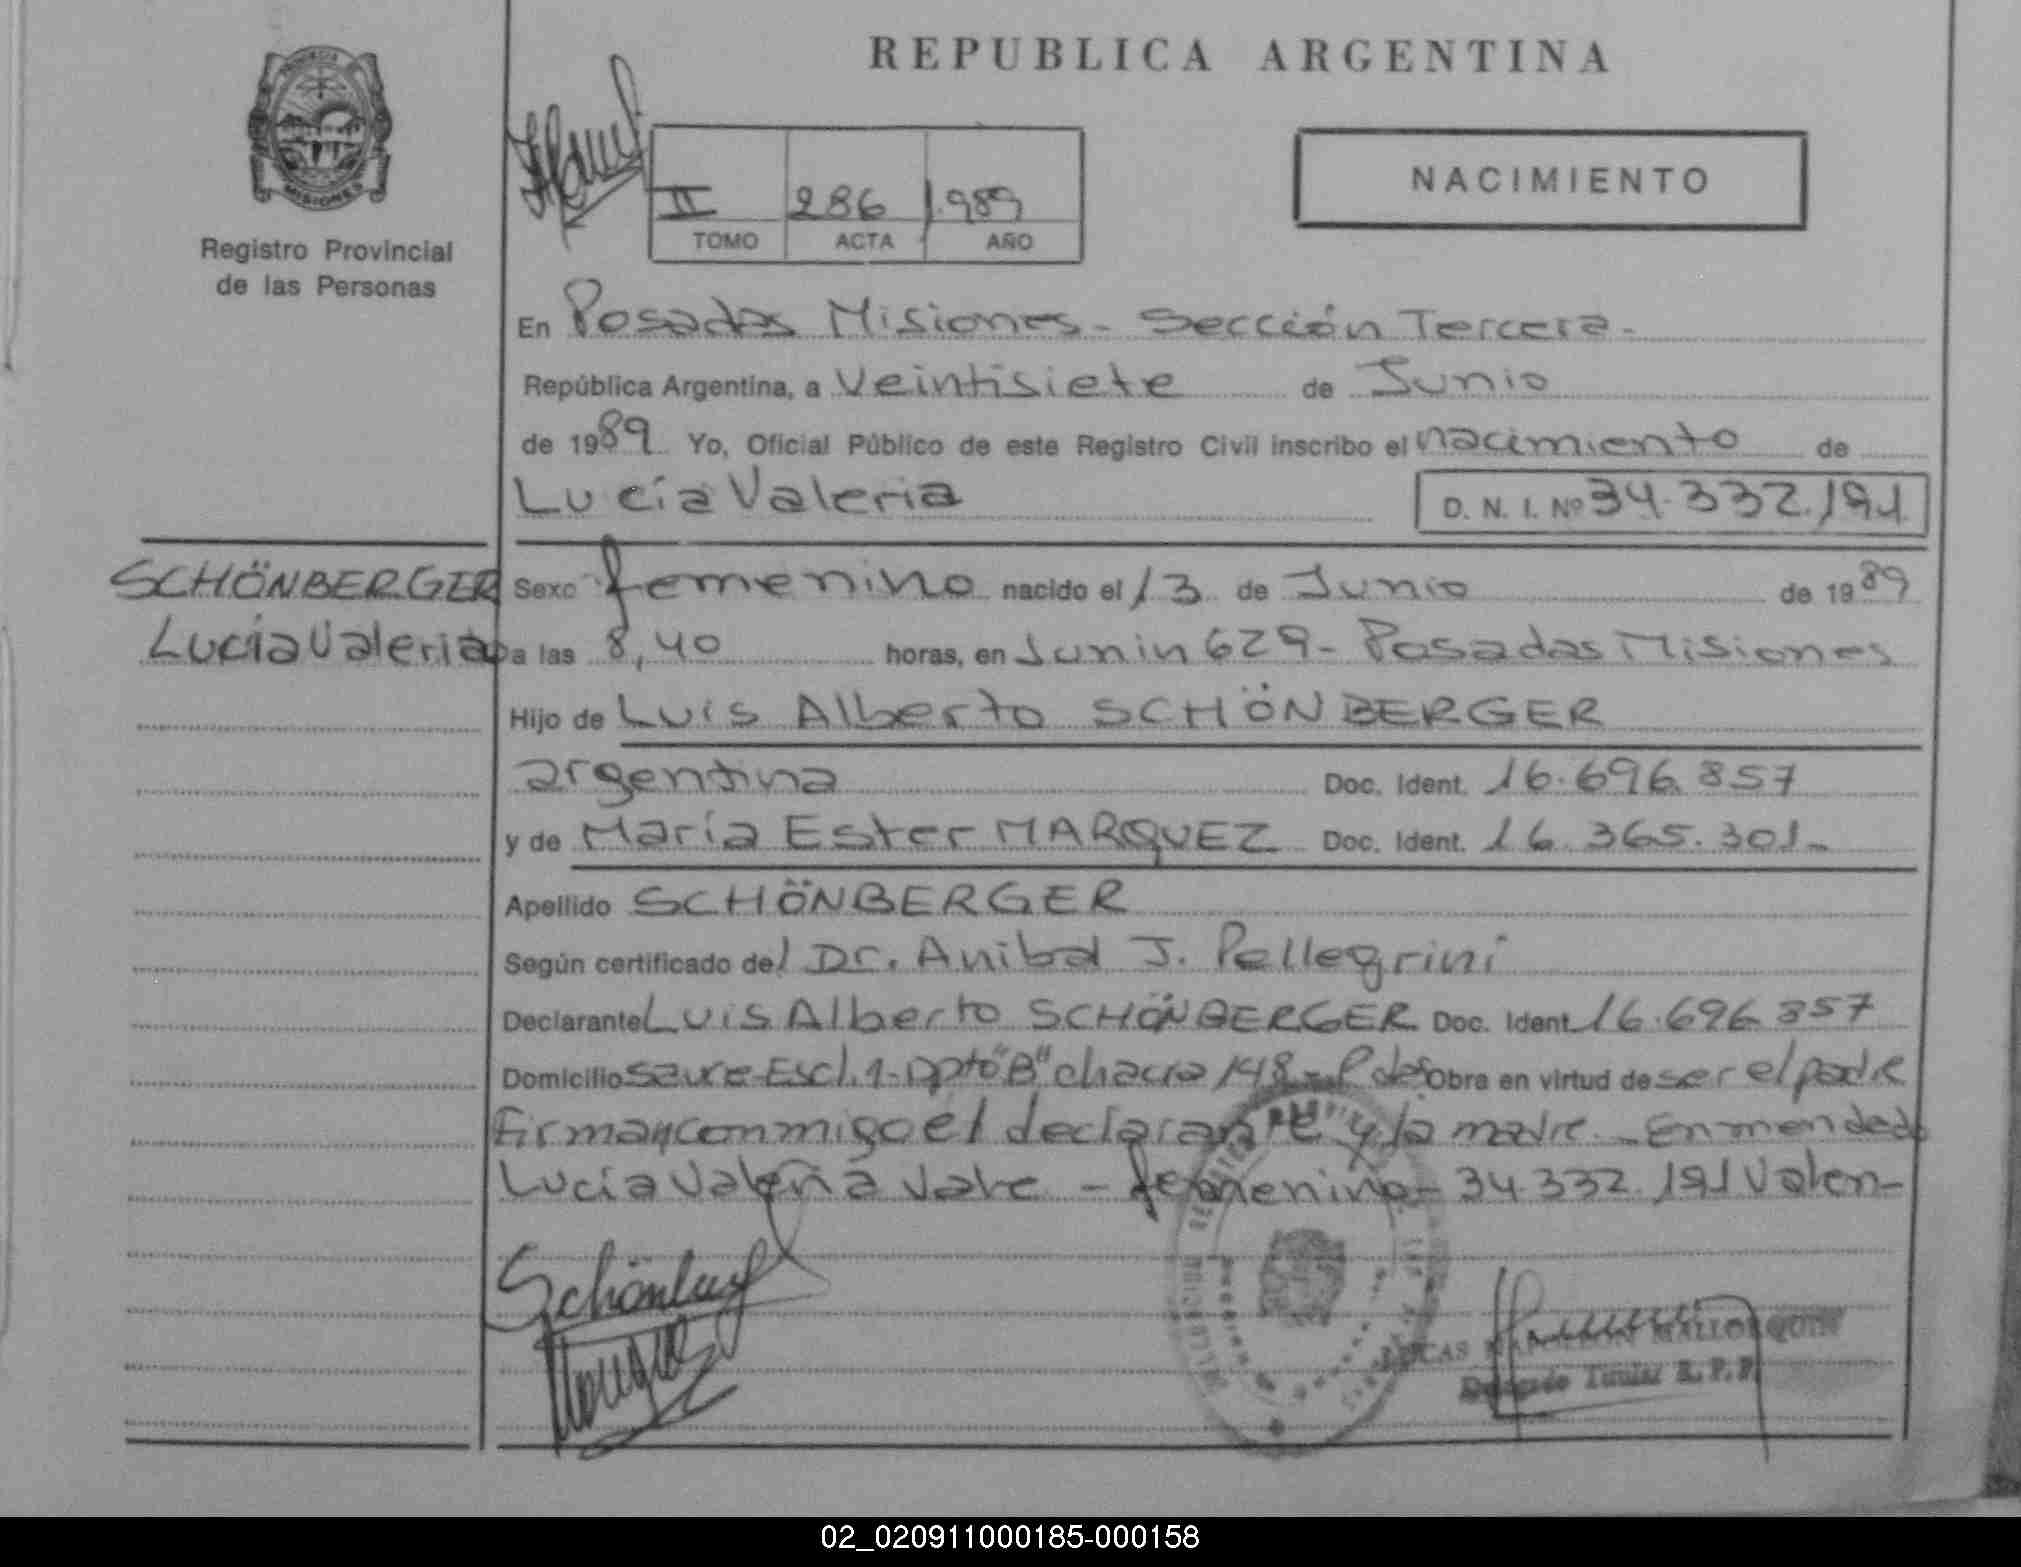 REPUBLICA ARGENTINA
PROVINCIA
MISIONES
Registro Provincial
de las Personas
II 286 1.989
TOMO ACTA AÑO
NACIMIENTO
En Posadas Misiones - Sección Tercera -
República Argentina, a Veintisiete de Junio
de 1989 Yo, Oficial Público de este Registro Civil inscribo el nacimiento de
Lucía Valeria D. N. I. Nº 34.332.191
SCHÖNBERGER
Lucía Valeria
Sexo femenino nacido el 13 de Junio de 1989
a las 8,40 horas, en Junin 629 - Posadas Misiones
Hijo de Luis Alberto SCHÖNBERGER
argentina Doc. Ident. 16.696.857
y de María Ester MARQUEZ Doc. Ident. 16.365.301-
Apellido SCHÖNBERGER
Según certificado del Dr. Anibal J. Pellegrini
Declarante Luis Alberto SCHÖNBERGER Doc. Ident. 16.696.857
Domicilio Escl. 1 - Dpto "B" chacra 148 - Obra en virtud de ser el padre
Firman conmigo el declarante y la madre - Enmendado
Lucía Valeria Vale - femenino - 34.332.191 Valen -
Schönberger
LUCAS NAPOLEON MALLORQUIN
Delegado Titular R. P. P.
02_020911000185-000158